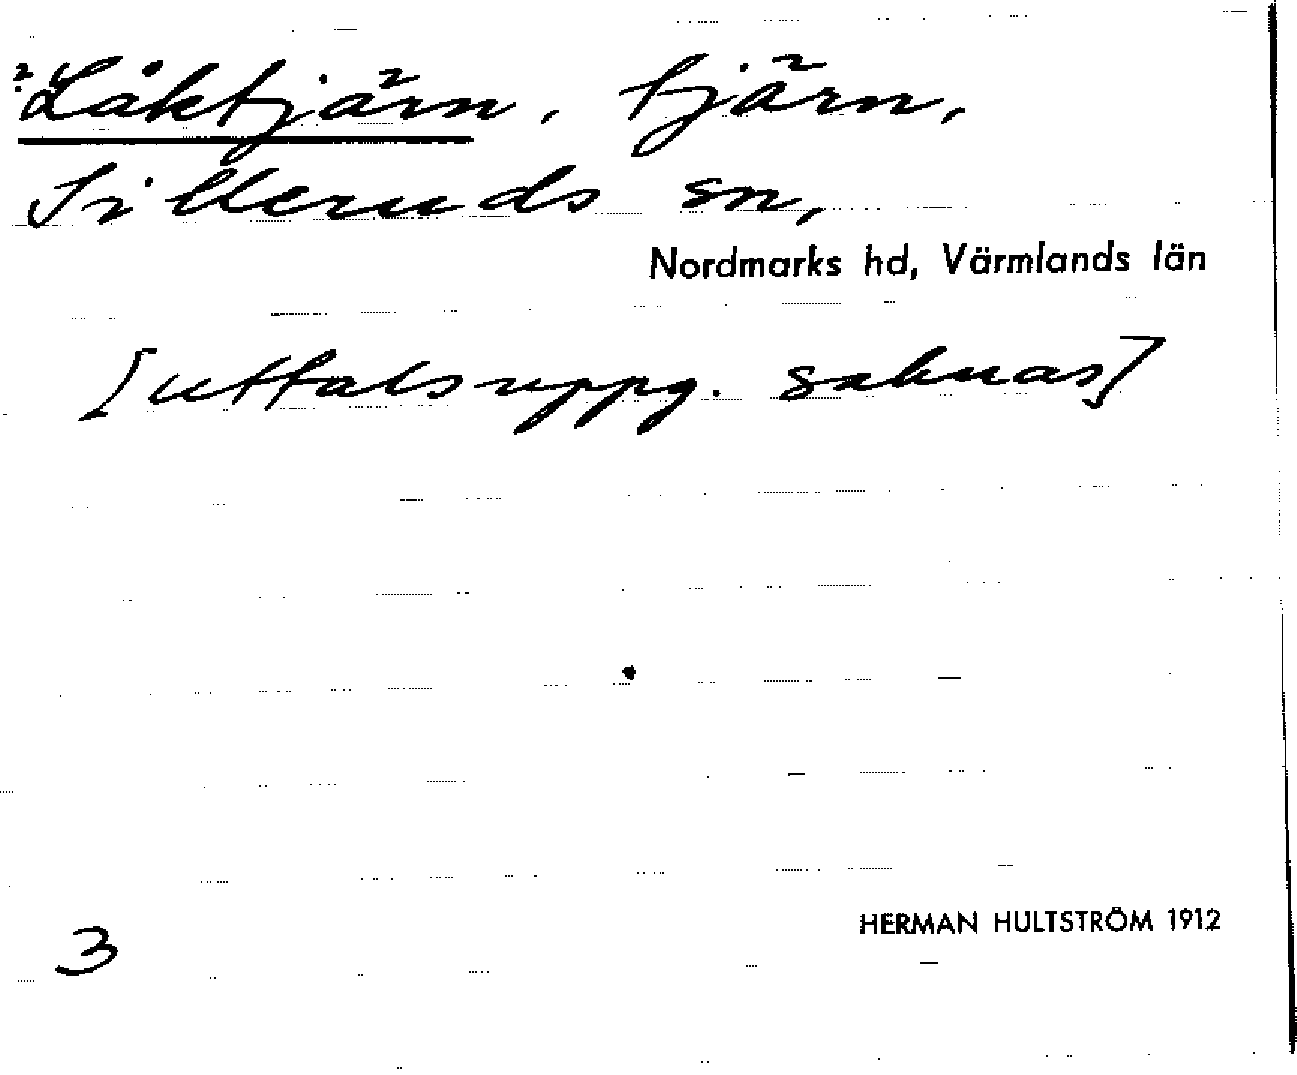 ?Låktjärn, tjärn,
Silleruds sn,
Nordmarks hd, Värmlands län
[uttalsuppg. saknas]
HERMAN HULTSTRÖM 1912
3